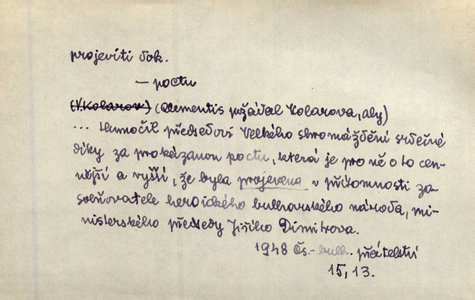 projeviti dok.
— poctu
(V. Kolarov) (Clementis požádal Kolarova, aby)
... tlumočil předsedovi Velkého shromáždění srdečné
díky za prokázanou poctu, která je pro ně o to cen-
nější a vyšší, že byla projevena v přítomnosti za-
sloužovatele heroického bulharského národa, mi-
nisterského předsedy Jiřího Dimitrova.
1948 Čs.-bulh. přátelství
15, 13.